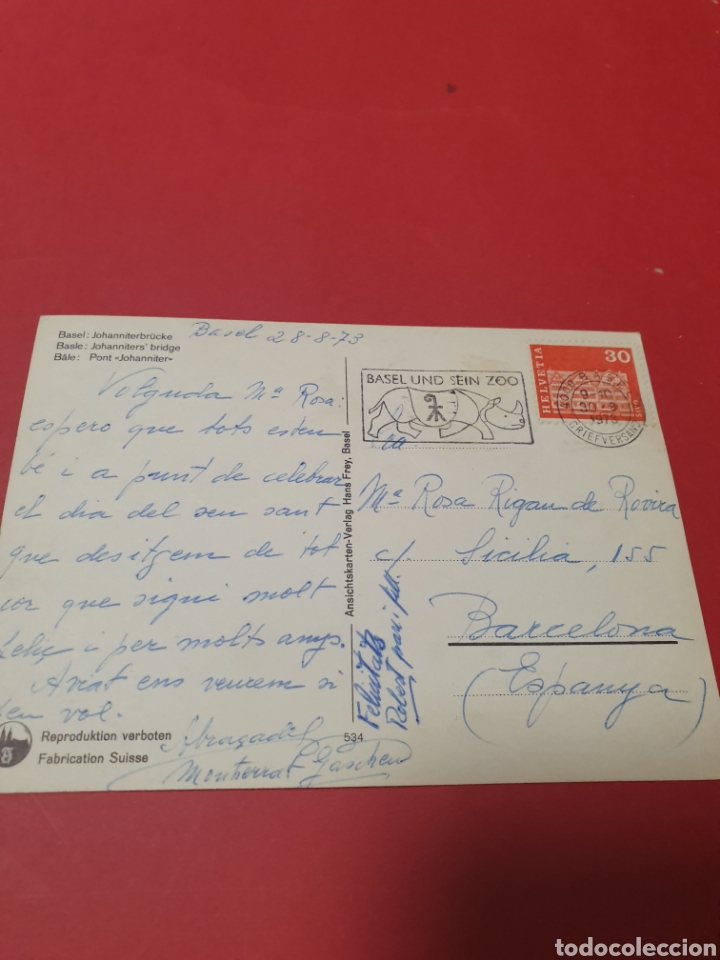 Basel: Johanniterbrücke
Basle: Johanniters' bridge
Bâle: Pont «Johanniter»
Basel 28-8-73
Volguda Mª Rosa:
espero que tots esteu
bé i a punt de celebrar
el dia del seu sant
que desitgem de tot
cor que sigui molt
feliç i per molts anys.
Aviat ens veurem si
Deu vol.
Abraçades
Montserrat
Reproduktion verboten
Fabrication Suisse
534
Ansichtskarten-Verlag Hans Frey, Basel
Felicitats
Robert pare i fill.
BASEL UND SEIN ZOO
HELVETIA
30
BRIEFVERSAND
Mª Rosa Rigau de Rovira
c/. Sicilia, 155
Barcelona
(Espanya)
todocoleccion